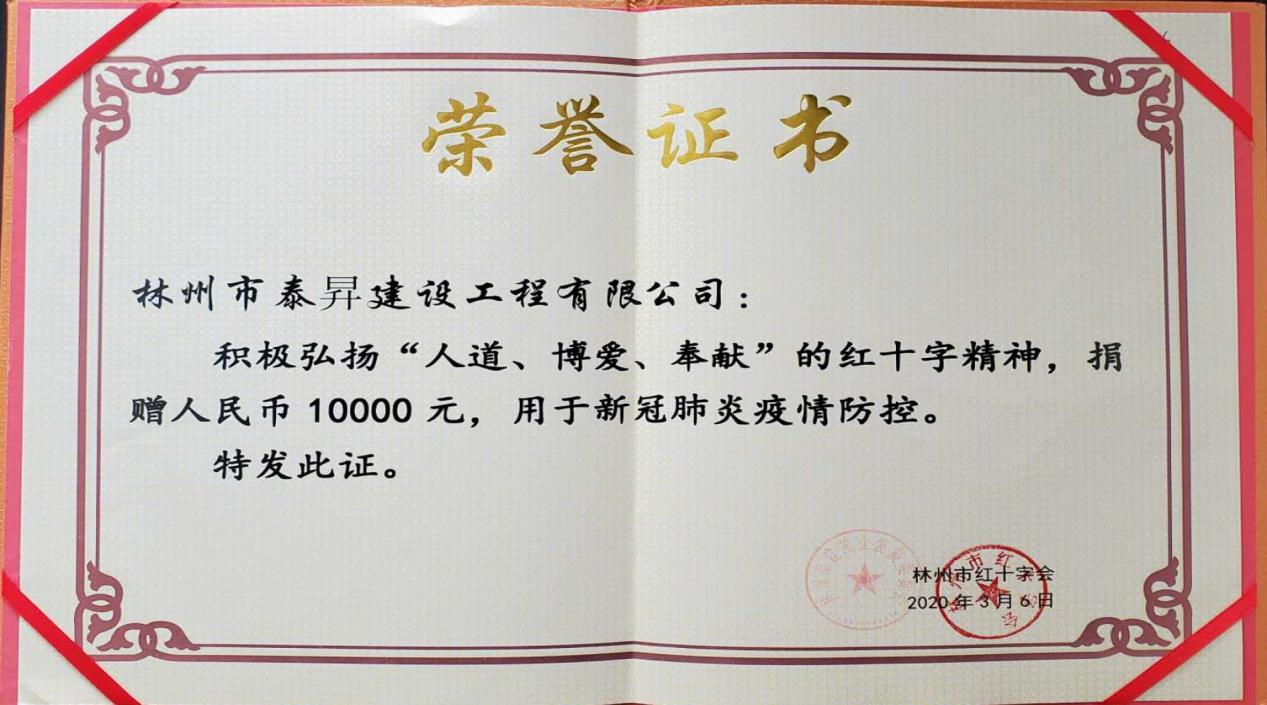 荣誉证书
林州市泰昇建设工程有限公司：
积极弘扬“人道、博爱、奉献”的红十字精神，捐
赠人民币 10000 元，用于新冠肺炎疫情防控。
特发此证。
林州市红十字会
2020 年 3 月 6 日